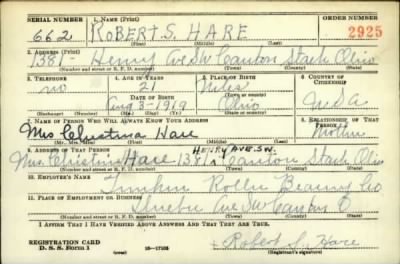 SERIAL NUMBER 1. NAME (Print) ORDER NUMBER
662 ROBERT S. HARE 2925
(First) (Middle) (Last)
2. ADDRESS (Print)
138 - Henry Ave SW Canton Stark Ohio
(Number and street or R. F. D. number) (Town) (County) (State)
3. TELEPHONE 4. AGE IN YEARS 5. PLACE OF BIRTH 6. COUNTRY OF CITIZENSHIP
no 21
DATE OF BIRTH
Aug 3-1919 Ohio USA
(Exchange) (Number) (Mo.) (Day) (Yr.) (State or country)
7. NAME OF PERSON WHO WILL ALWAYS KNOW YOUR ADDRESS 8. RELATIONSHIP OF THAT PERSON
Mrs Christina Hare Mother
(Mr., Mrs., Miss) (First) (Middle) (Last)
9. ADDRESS OF THAT PERSON
HENRY AVE. SW.
Mrs. Christina Hare - 138 Canton Stark Ohio
(Number and street or R. F. D. number) (Town) (County) (State)
10. EMPLOYER'S NAME
Timken Roller Bearing Co
11. PLACE OF EMPLOYMENT OR BUSINESS
Dueber Ave SW Canton O
(Number and street or R. F. D. number) (Town) (County) (State)
I AFFIRM THAT I HAVE VERIFIED ABOVE ANSWERS AND THAT THEY ARE TRUE.
REGISTRATION CARD
D. S. S. Form 1 16-17105 Robert S. Hare
(Registrant's signature)